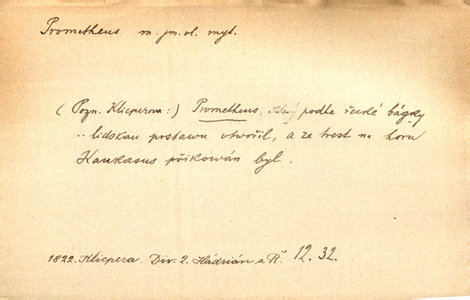 Prometheus m. jm. ol. myt.
(Pozn. Klicperova:) Prometheus, který podle řecké bágky
.. lidskau postawu otwořil, a za trest na horu
Kaukasus přikowán byl.
1822. Klicpera. Div. 2. Hádrián a Ř. 12. 32.